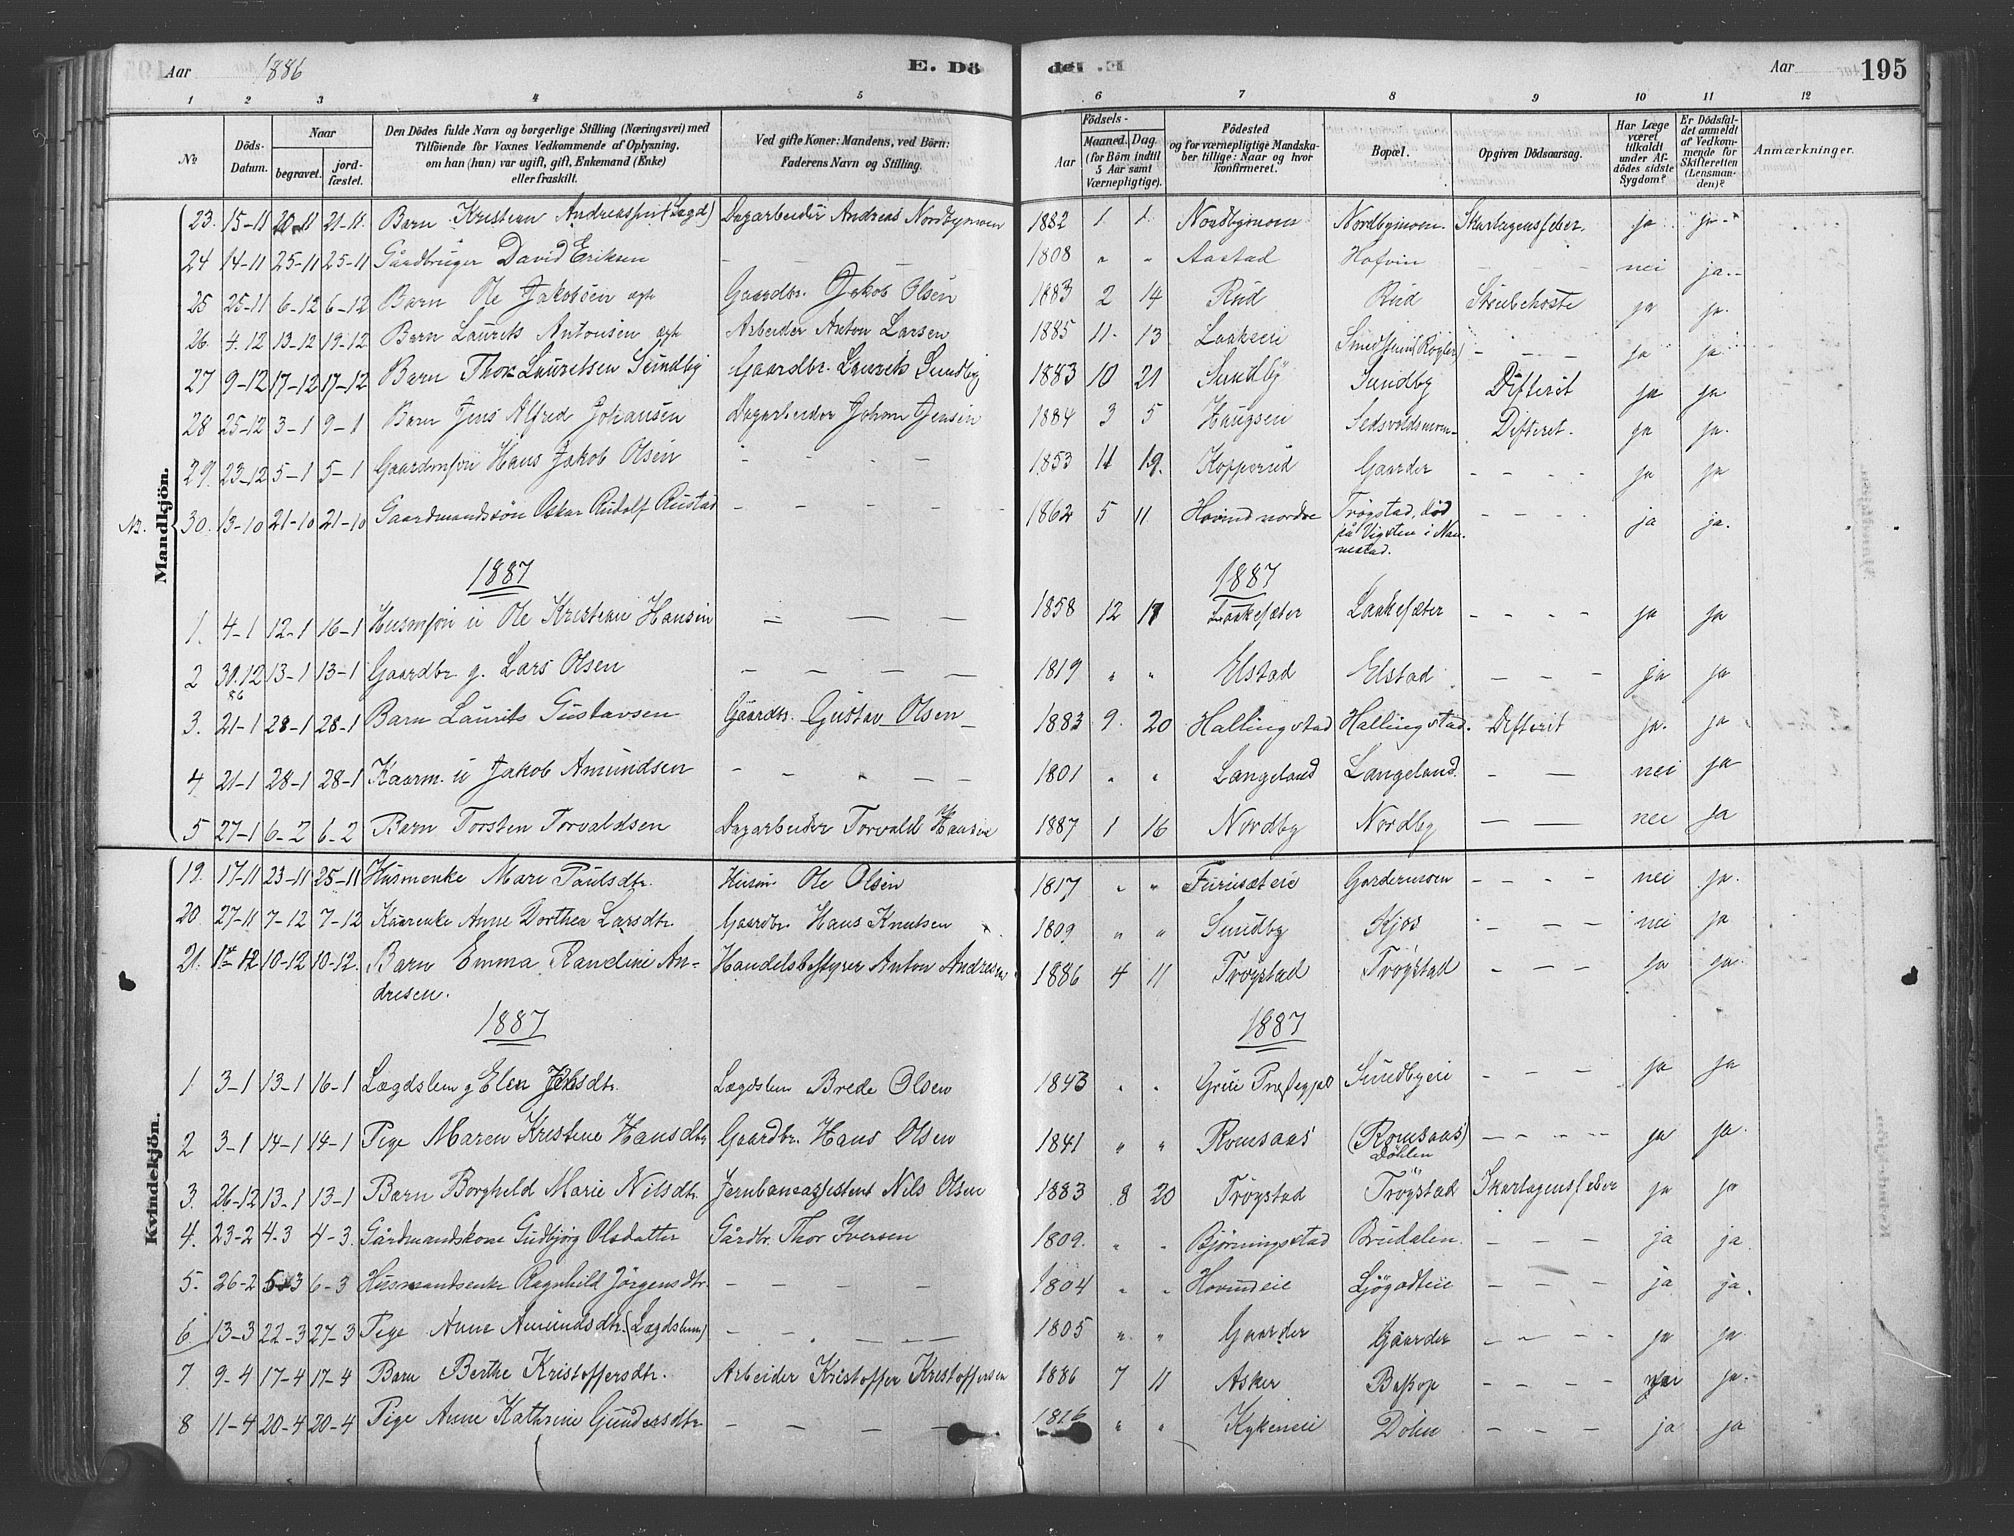 Aar 1886 E. Dö
de. Aar 195
1 2 3 4 5 6 7 8 9 10 11 12
No
Döds-Datum.
Naar
begravet.
jord-fæstet.
Den Dödes fulde Navn og borgerlige Stilling (Næringsvei) med
Tilföiende for Voxnes Vedkommende af Oplysning,
om han (hun) var ugift, gift, Enkemand (Enke)
eller fraskilt.
Ved gifte Koner: Mandens, ved Börn:
Faderens Navn og Stilling.
Födsels-
Aar
Maaned. Dag.
(for Börn indtil
5 Aar samt
Værnepligtige).
Födested
og for værnepligtige Mandska-
ber tillige: Naar og hvor
konfirmeret.
Bopæl.
Opgiven Dödsaarsag.
Har Læge
været
tilkaldt
under Af-
dödes sidste
Sygdom?
Er Dödsfal-
det anmeldt
af Vedkom-
mende for
Skifteretten
(Lensman-
den)?
Anmærkninger.
Mandkjön.
23. 15-11 20-11 21-11. Barn Kristian (Lægd) Dagarbeider Andreas Nordbymoen 1882 1 1 Nordbymoen Nordbymoen Skarlagensfeber ja ja
24 14-11 25-11 25-11 Gaardbruger David Eriksen – – – 1808 " " Aastad Hofvin – – – nei ja
25 25-11 6-12 6-12 Barn Ole Jakobsen ægte Gaardbr. Jakob Olsen 1883 2 14 Rud Rud Strubehoste ja ja
26. 4-12 13-12 19-12 Barn Laurits Antonsen ægte Arbeider Anton Larsen 1885 11 13 – – – ja ja
27 9-12 17-12 17-12 Barn Thor Lauritsen Sundby Gaardbr. Laurits Sundby 1883 10 21 Sundby Sundby Difterit ja ja
28 25-12 3-1 9-1 Barn Jens Alfred Johansen Dagarbeider Johan Jensen 1884 3 5 Haugseie Difterit. ja ja.
29. 23-12 5-1 5-1 Gaardmsön Hans Jakob Olsen – – – – 1853 11 19. Kopperud Gaarder – – – – ja ja
No. 30. 13-10 21-10 21-10 Gaardmandssön Oskar Rudolf Rustad – – – – 1862 5 11 Hovind nordre Trögstad, död
på Vigsten i Nan-
nestad. – – – – ja ja.
1887 1887
1. 4-1 12-1 16-1 Husmsön u Ole Kristian Hansen – – – 1858 12 17 Laakesæter Laakesæter – – – – ja ja
2 30.12 86 13-1 13-1 Gaardbr g. Lars Olsen – – – – 1819 " " Elstad Elstad – – – ja ja
3. 21-1 28-1 28-1 Barn Laurits Gustavsen Gaardbr. Gustav Olsen 1883 9. 20 Hallingstad Hallingstad. Difterit ja. ja
4 21-1 28-1 28-1 Kaarm. u Jakob Amundsen – – – – 1801 " " Langeland Langeland. – – nei ja
5 27-1 6-2 6-2 Barn Torsten Torvaldsen Dagarbeider Torvald Hansen 1887 1 16 Nordby Nordby – – nei ja
Kvindekjön.
19. 17-11 23-11 25-11 Husmenke Mari Paulsdtr. Husm Ole Olsen 1817 " " Furusæteie Gardermoen – – – – nei ja.
20. 27-11 7-12 7-12 Kaarenke Anne Dorthea Larsdtr. Gaardbr. Hans Knutsen 1809 " " Sundby Kjos – – – nei ja
21. 1-12 10-12 10-12. Barn Emma Randine An-
dresen. Handelsbestyrer Anton Andresen 1886 4 11 Trögstad Trögstad – – – ja ja.
1887 1887
1 3-1 13-1 16-1 Lægdslem g Elen dtr. Lægdslem Brede Olsen 1843 " " Grue Præstegjeld Sundbyeie – – – – ja ja
2 3-1 14-1 14-1 Pige Maren Kristine Hansdtr Gaardbr. Hans Olsen 1841 " " Romsaas (Romsaas)
Döhlen – – – – ja ja.
3. 26-12 13-1 13-1 Barn Borghild Marie Nilsdtr. Jernbaneassistent Nils Olsen 1883 8 20 Trögstad Trögstad Skarlagensfeber ja ja
4. 23-2 4-3 4-3. Gårdmandskone Gudbjörg Olsdatter Gårdbr. Thor Iversen 1809. " " Bjørningstad Brudalen. – – – ja ja.
5. 26-2 5-3 6-3 Husmandsenke Ragnhild Jörgensdtr. – – – – 1804 " " Hovindeie Ljögodteie – – – ja ja.
6 13-3 22-3 27-3 Pige Anne Amundsdtr. (Lægdslem) – – – – 1805 " " Gaarder Gaarder – – – – ja ja.
7 9-4 17-4 17-4 Barn Berthe Kristoffersdtr. Arbeider Kristoffer Kristoffersen 1886 7 11 Asker Bassop – – – – ja.
8 11-4 20-4 20-4 Pige Anne Kathrine Gundersdtr – – – 1816 " " Kykeneie Dölen – – – – ja ja